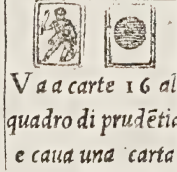 Va a carte 16 al
quadro di prudẽtia
e caua una carta